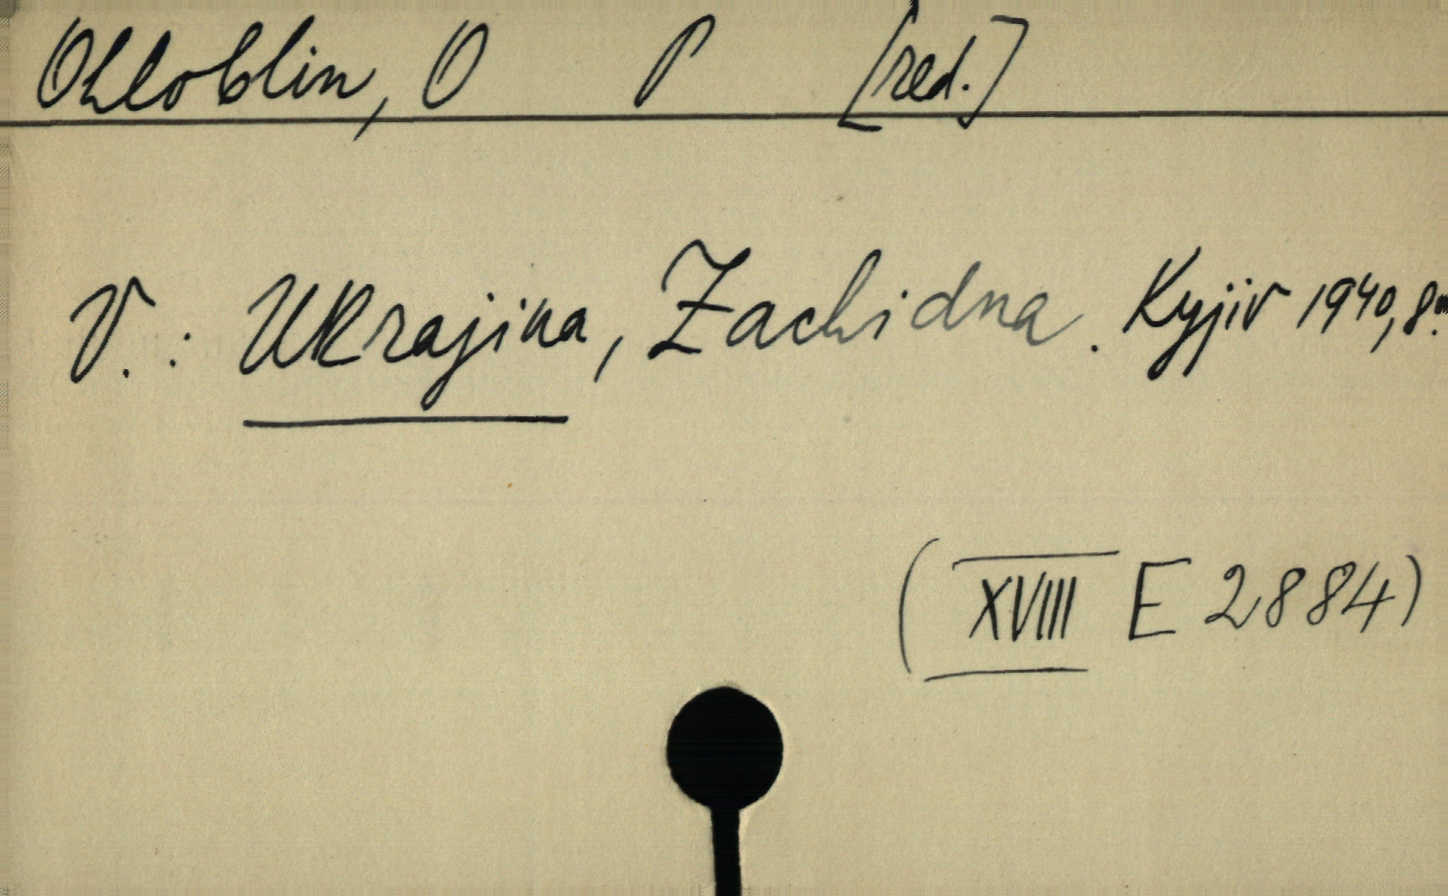 Ohloblin, O P [red.]
V.: Ukrajina, Zachidna. Kyjiv 1940, 8
(XVIII E 2884)